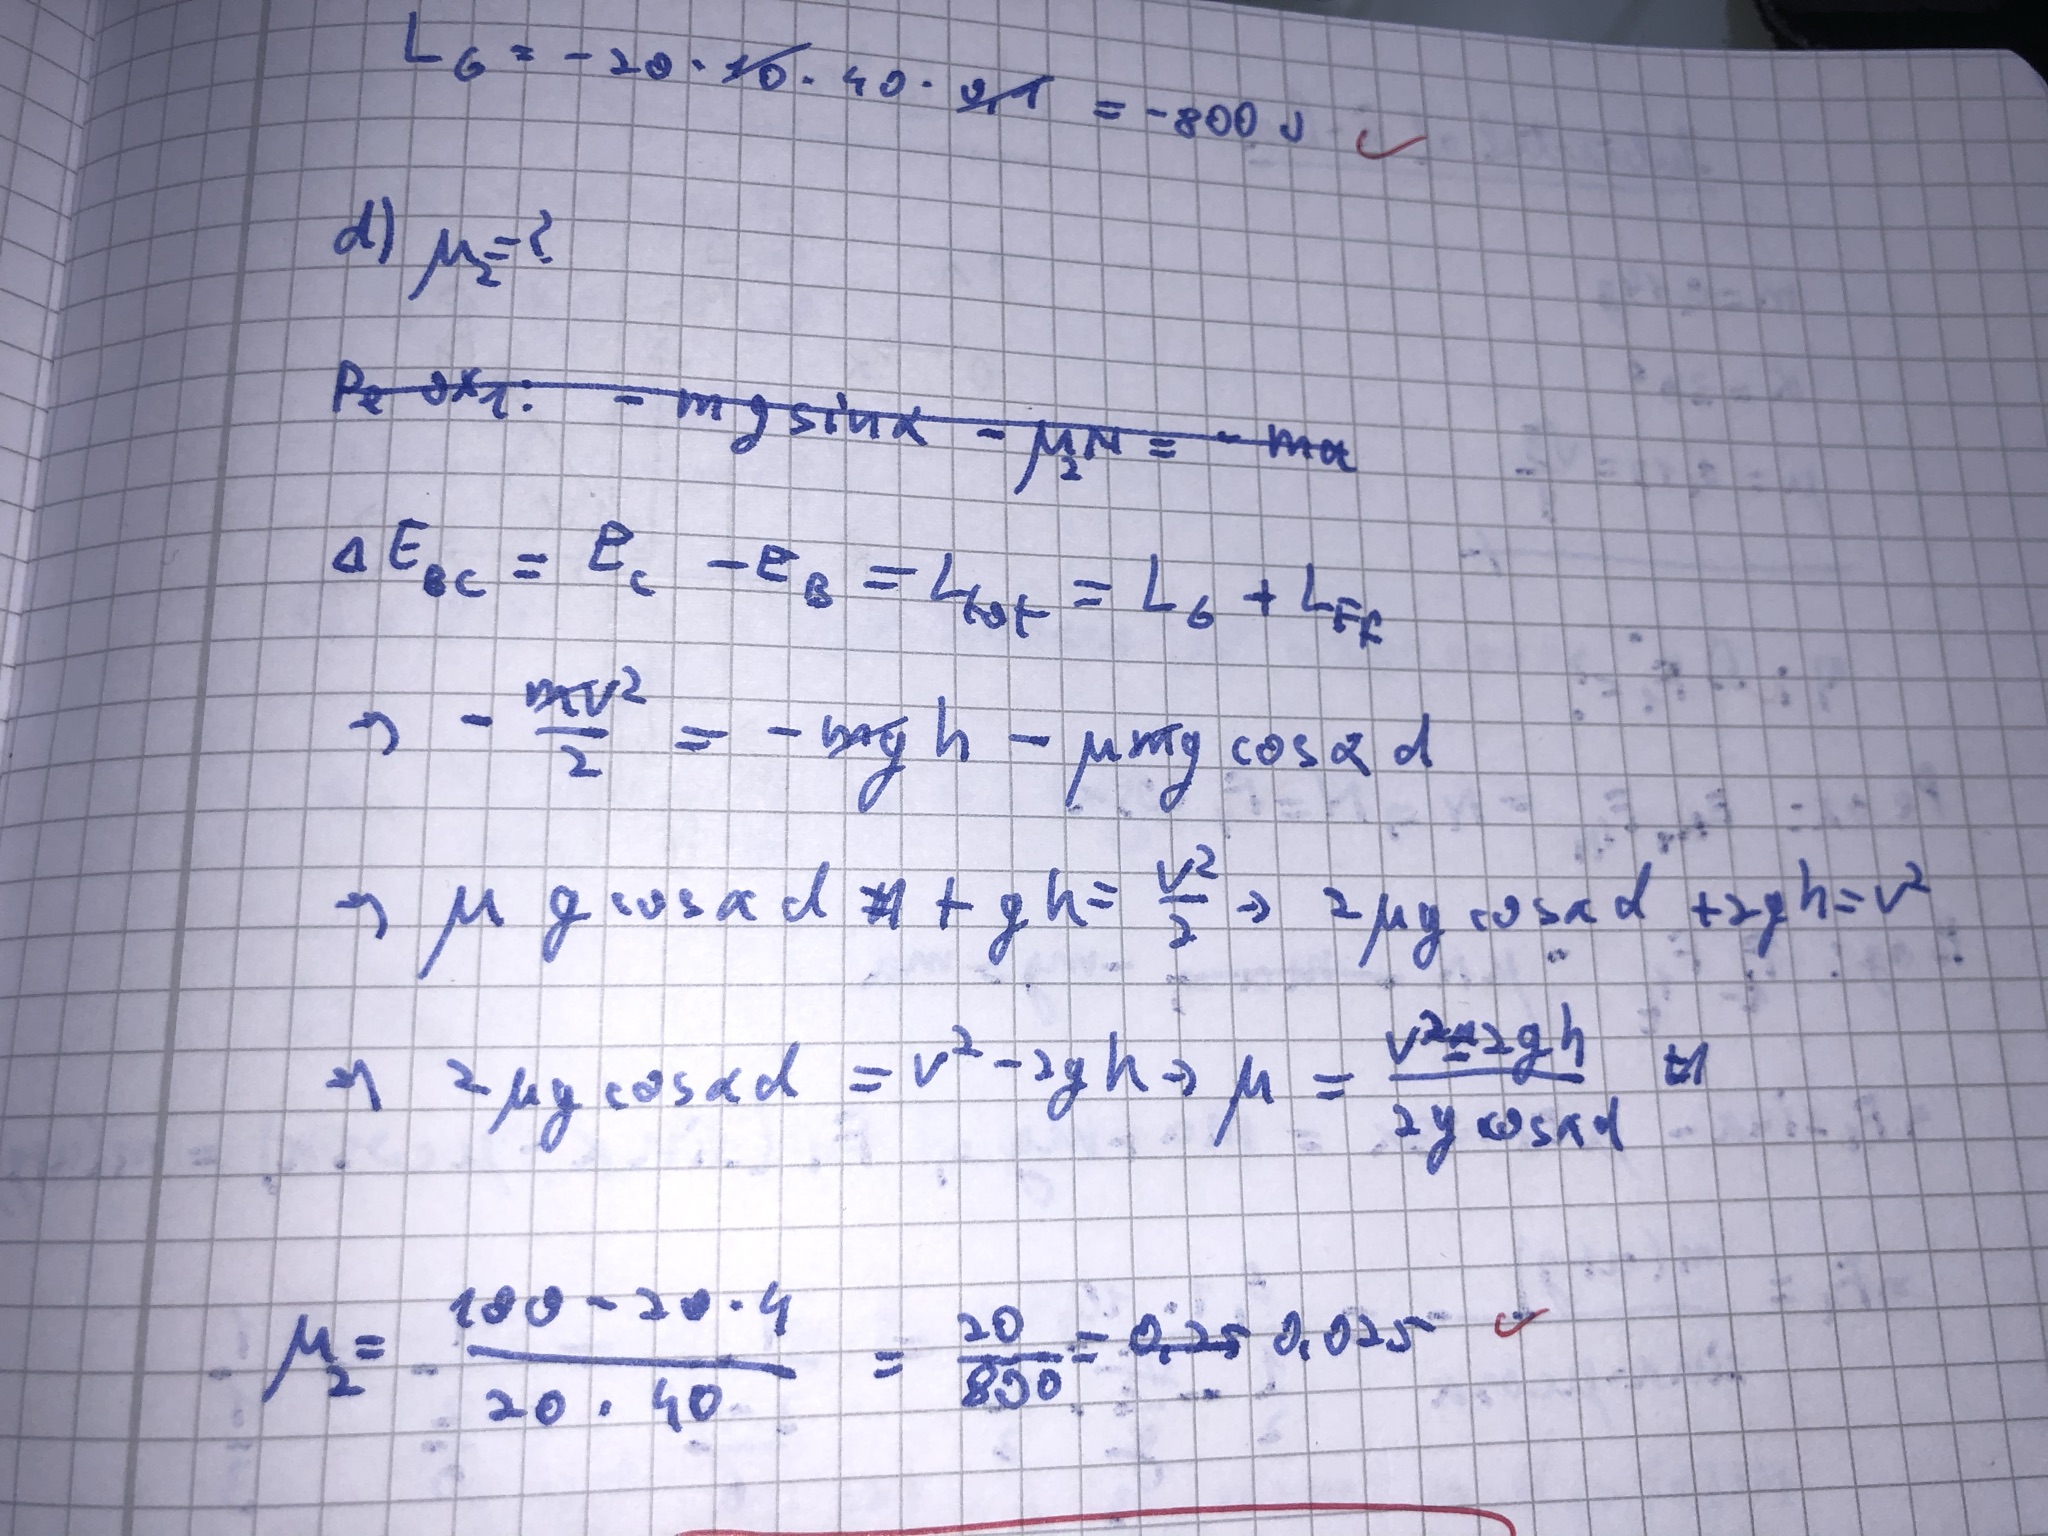 L_G = -20 · 10 · 40 · 0,1 = -800 J ✓
d) μ₂ = ?
Pe ox₁: - mg sin α - μ₂N = - ma
Δ E_BC = E_C - E_B = L_tot = L_G + L_Ff
⇒ - mv²/2 = - mg h - μ mg cos α d
⇒ μ g cos α d + g h = v²/2 ⇒ 2 μ g cos α d + 2gh = v²
⇒ 2 μ g cos α d = v² - 2g h ⇒ μ = (v² - 2gh)/(2g cos α d)
μ₂ = (100 - 20 · 4)/(20 · 40) = 20/800 = 0,25 0,025 ✓